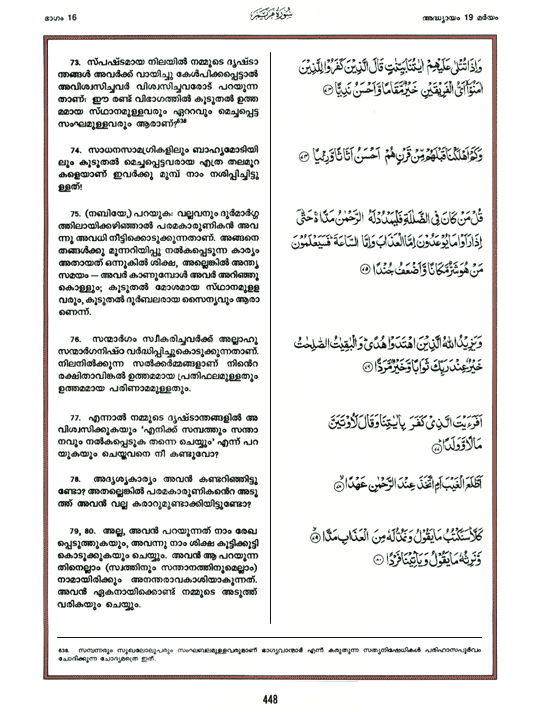 ഭാഗം 16
سُورَة مَرْيَم
അദ്ധ്യായം 19 മർയം
73. സ്പഷ്ടമായ നിലയിൽ നമ്മുടെ ദൃഷ്ടാ
ന്തങ്ങൾ അവർക്ക് വായിച്ചു കേൾപിക്കപ്പെട്ടാൽ
അവിശ്വസിച്ചവർ വിശ്വസിച്ചവരോട് പറയുന്ന
താണ്: ഈ രണ്ട് വിഭാഗത്തിൽ കൂടുതൽ ഉത്ത
മമായ സ്ഥാനമുള്ളവരും ഏററവും മെച്ചപ്പെട്ട
സംഘമുള്ളവരും ആരാണ്?⁶³⁸
وَإِذَا تُتْلَىٰ عَلَيْهِمْ ءَايَٰتُنَا بَيِّنَٰتٍ قَالَ ٱلَّذِينَ كَفَرُوا۟ لِلَّذِينَ
ءَامَنُوٓا۟ أَىُّ ٱلْفَرِيقَيْنِ خَيْرٌ مَّقَامًا وَأَحْسَنُ نَدِيًّا ۝٧٣
74. സാധനസാമഗ്രികളിലും ബാഹ്യമോടിയി
ലും കൂടുതൽ മെച്ചപ്പെട്ടവരായ എത്ര തലമുറ
കളെയാണ് ഇവർക്കു മുമ്പ് നാം നശിപ്പിച്ചിട്ടു
ള്ളത്!
وَكَمْ أَهْلَكْنَا قَبْلَهُم مِّن قَرْنٍ هُمْ أَحْسَنُ أَثَٰثًا وَرِءْيًا ۝٧٤
75. (നബിയേ,) പറയുക: വല്ലവനും ദുർമാർഗ്ഗ
ത്തിലായിക്കഴിഞ്ഞാൽ പരമകാരുണികൻ അവ
ന്നു അവധി നീട്ടിക്കൊടുക്കുന്നതാണ്. അങ്ങനെ
തങ്ങൾക്കു മുന്നറിയിപ്പു നൽകപ്പെടുന്ന കാര്യം
അതായത് ഒന്നുകിൽ ശിക്ഷ, അല്ലെങ്കിൽ അന്ത്യ
സമയം — അവർ കാണുമ്പോൾ അവർ അറിഞ്ഞു
കൊള്ളും; കൂടുതൽ മോശമായ സ്ഥാനമുള്ള
വരും, കൂടുതൽ ദുർബലരായ സൈന്യവും ആരാ
ണെന്ന്.
قُلْ مَن كَانَ فِى ٱلضَّلَٰلَةِ فَلْيَمْدُدْ لَهُ ٱلرَّحْمَٰنُ مَدًّا ۚ حَتَّىٰٓ
إِذَا رَأَوْا۟ مَا يُوعَدُونَ إِمَّا ٱلْعَذَابَ وَإِمَّا ٱلسَّاعَةَ فَسَيَعْلَمُونَ
مَنْ هُوَ شَرٌّ مَّكَانًا وَأَضْعَفُ جُندًا ۝٧٥
76. സന്മാർഗം സ്വീകരിച്ചവർക്ക് അല്ലാഹു
സന്മാർഗനിഷ്ഠ വർദ്ധിപ്പിച്ചുകൊടുക്കുന്നതാണ്.
നിലനിൽക്കുന്ന സൽക്കർമ്മങ്ങളാണ് നിൻെറ
രക്ഷിതാവിങ്കൽ ഉത്തമമായ പ്രതിഫലമുള്ളതും
ഉത്തമമായ പരിണാമമുള്ളതും.
وَيَزِيدُ ٱللَّهُ ٱلَّذِينَ ٱهْتَدَوْا۟ هُدًى ۗ وَٱلْبَٰقِيَٰتُ ٱلصَّٰلِحَٰتُ
خَيْرٌ عِندَ رَبِّكَ ثَوَابًا وَخَيْرٌ مَّرَدًّا ۝٧٦
77. എന്നാൽ നമ്മുടെ ദൃഷ്ടാന്തങ്ങളിൽ അ
വിശ്വസിക്കുകയും 'എനിക്ക് സമ്പത്തും സന്താ
നവും നൽകപ്പെടുക തന്നെ ചെയ്യും' എന്ന് പറ
യുകയും ചെയ്തവനെ നീ കണ്ടുവോ?
أَفَرَءَيْتَ ٱلَّذِى كَفَرَ بِـَٔايَٰتِنَا وَقَالَ لَأُوتَيَنَّ
مَالًا وَوَلَدًا ۝٧٧
78. അദൃശ്യകാര്യം അവൻ കണ്ടറിഞ്ഞിട്ടു
ണ്ടോ? അതല്ലെങ്കിൽ പരമകാരുണികൻെറ അടു
ത്ത് അവൻ വല്ല കരാറുമുണ്ടാക്കിയിട്ടുണ്ടോ?
أَطَّلَعَ ٱلْغَيْبَ أَمِ ٱتَّخَذَ عِندَ ٱلرَّحْمَٰنِ عَهْدًا ۝٧٨
79, 80. അല്ല, അവൻ പറയുന്നത് നാം രേഖ
പ്പെടുത്തുകയും, അവന്നു നാം ശിക്ഷ കൂട്ടിക്കൂട്ടി
കൊടുക്കുകയും ചെയ്യും. അവൻ ആ പറയുന്ന
തിനെല്ലാം (സ്വത്തിനും സന്താനത്തിനുമെല്ലാം)
നാമായിരിക്കും അനന്തരാവകാശിയാകുന്നത്.
അവൻ ഏകനായിക്കൊണ്ട് നമ്മുടെ അടുത്ത്
വരികയും ചെയ്യും.
كَلَّا ۚ سَنَكْتُبُ مَا يَقُولُ وَنَمُدُّ لَهُۥ مِنَ ٱلْعَذَابِ مَدًّا ۝٧٩
وَنَرِثُهُۥ مَا يَقُولُ وَيَأْتِينَا فَرْدًا ۝٨٠
638. സമ്പന്നരും സുഖലോലുപരും സംഘബലമുള്ളവരുമാണ് ഭാഗ്യവാന്മാർ എന്ന് കരുതുന്ന സത്യനിഷേധികൾ പരിഹാസപൂർവം
ചോദിക്കുന്ന ചോദ്യമത്രെ ഇത്.
448